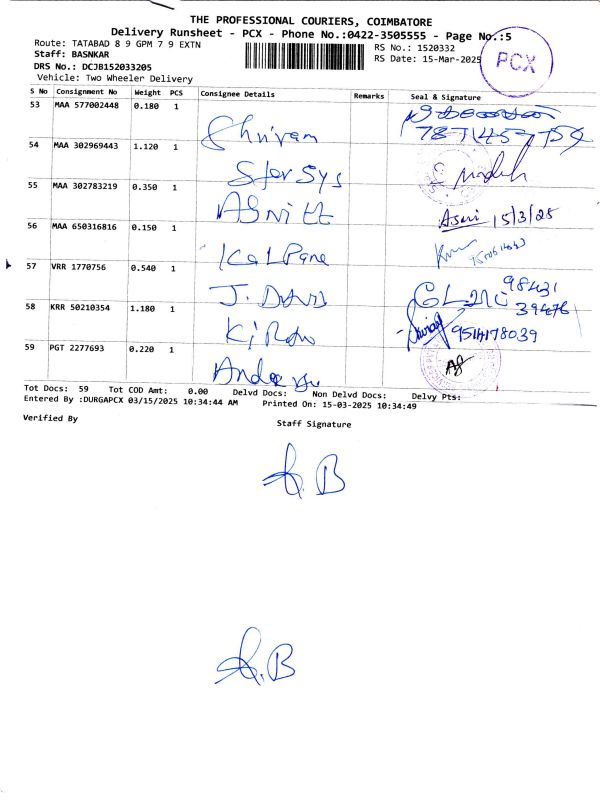 THE PROFESSIONAL COURIERS, COIMBATORE
Delivery Runsheet - PCX - Phone No.:0422-3505555 - Page No.:5
Route: TATABAD 8 9 GPM 7 9 EXTN
RS No.: 1520332
Staff: BASNKAR
RS Date: 15-Mar-2025
PCX
DRS No.: DCJB152033205
Vehicle: Two Wheeler Delivery
S No Consignment No Weight PCS Consignee Details Remarks Seal & Signature
53 MAA 577002448 0.180 1 Shriram
54 MAA 302969443 1.120 1 Sfer Sys
55 MAA 302783219 0.350 1 15/3/25
56 MAA 650316816 0.150 1 Kalpana
57 VRR 1770756 0.540 1 J. David 98431
39476
58 KRR 50210354 1.180 1 9514178039
59 PGT 2277693 0.220 1
Tot Docs: 59 Tot COD Amt: 0.00 Delvd Docs: Non Delvd Docs: Delvy Pts:
Entered By :DURGAPCX 03/15/2025 10:34:44 AM Printed On: 15-03-2025 10:34:49
Verified By
Staff Signature
B
B